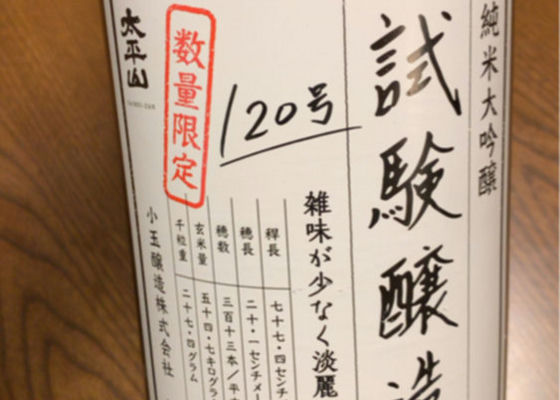 純米大吟醸
試験醸造
120号
雑味が少なく淡麗
稈長 七十七・四センチ
穂長 二十・一センチメー
穂数 三百十三本/平
玄米量 五十四・七キログラ
千粒重 二十七・四グラム
数量限定
太平山
TAIHEI-ZAN
小玉醸造株式会社